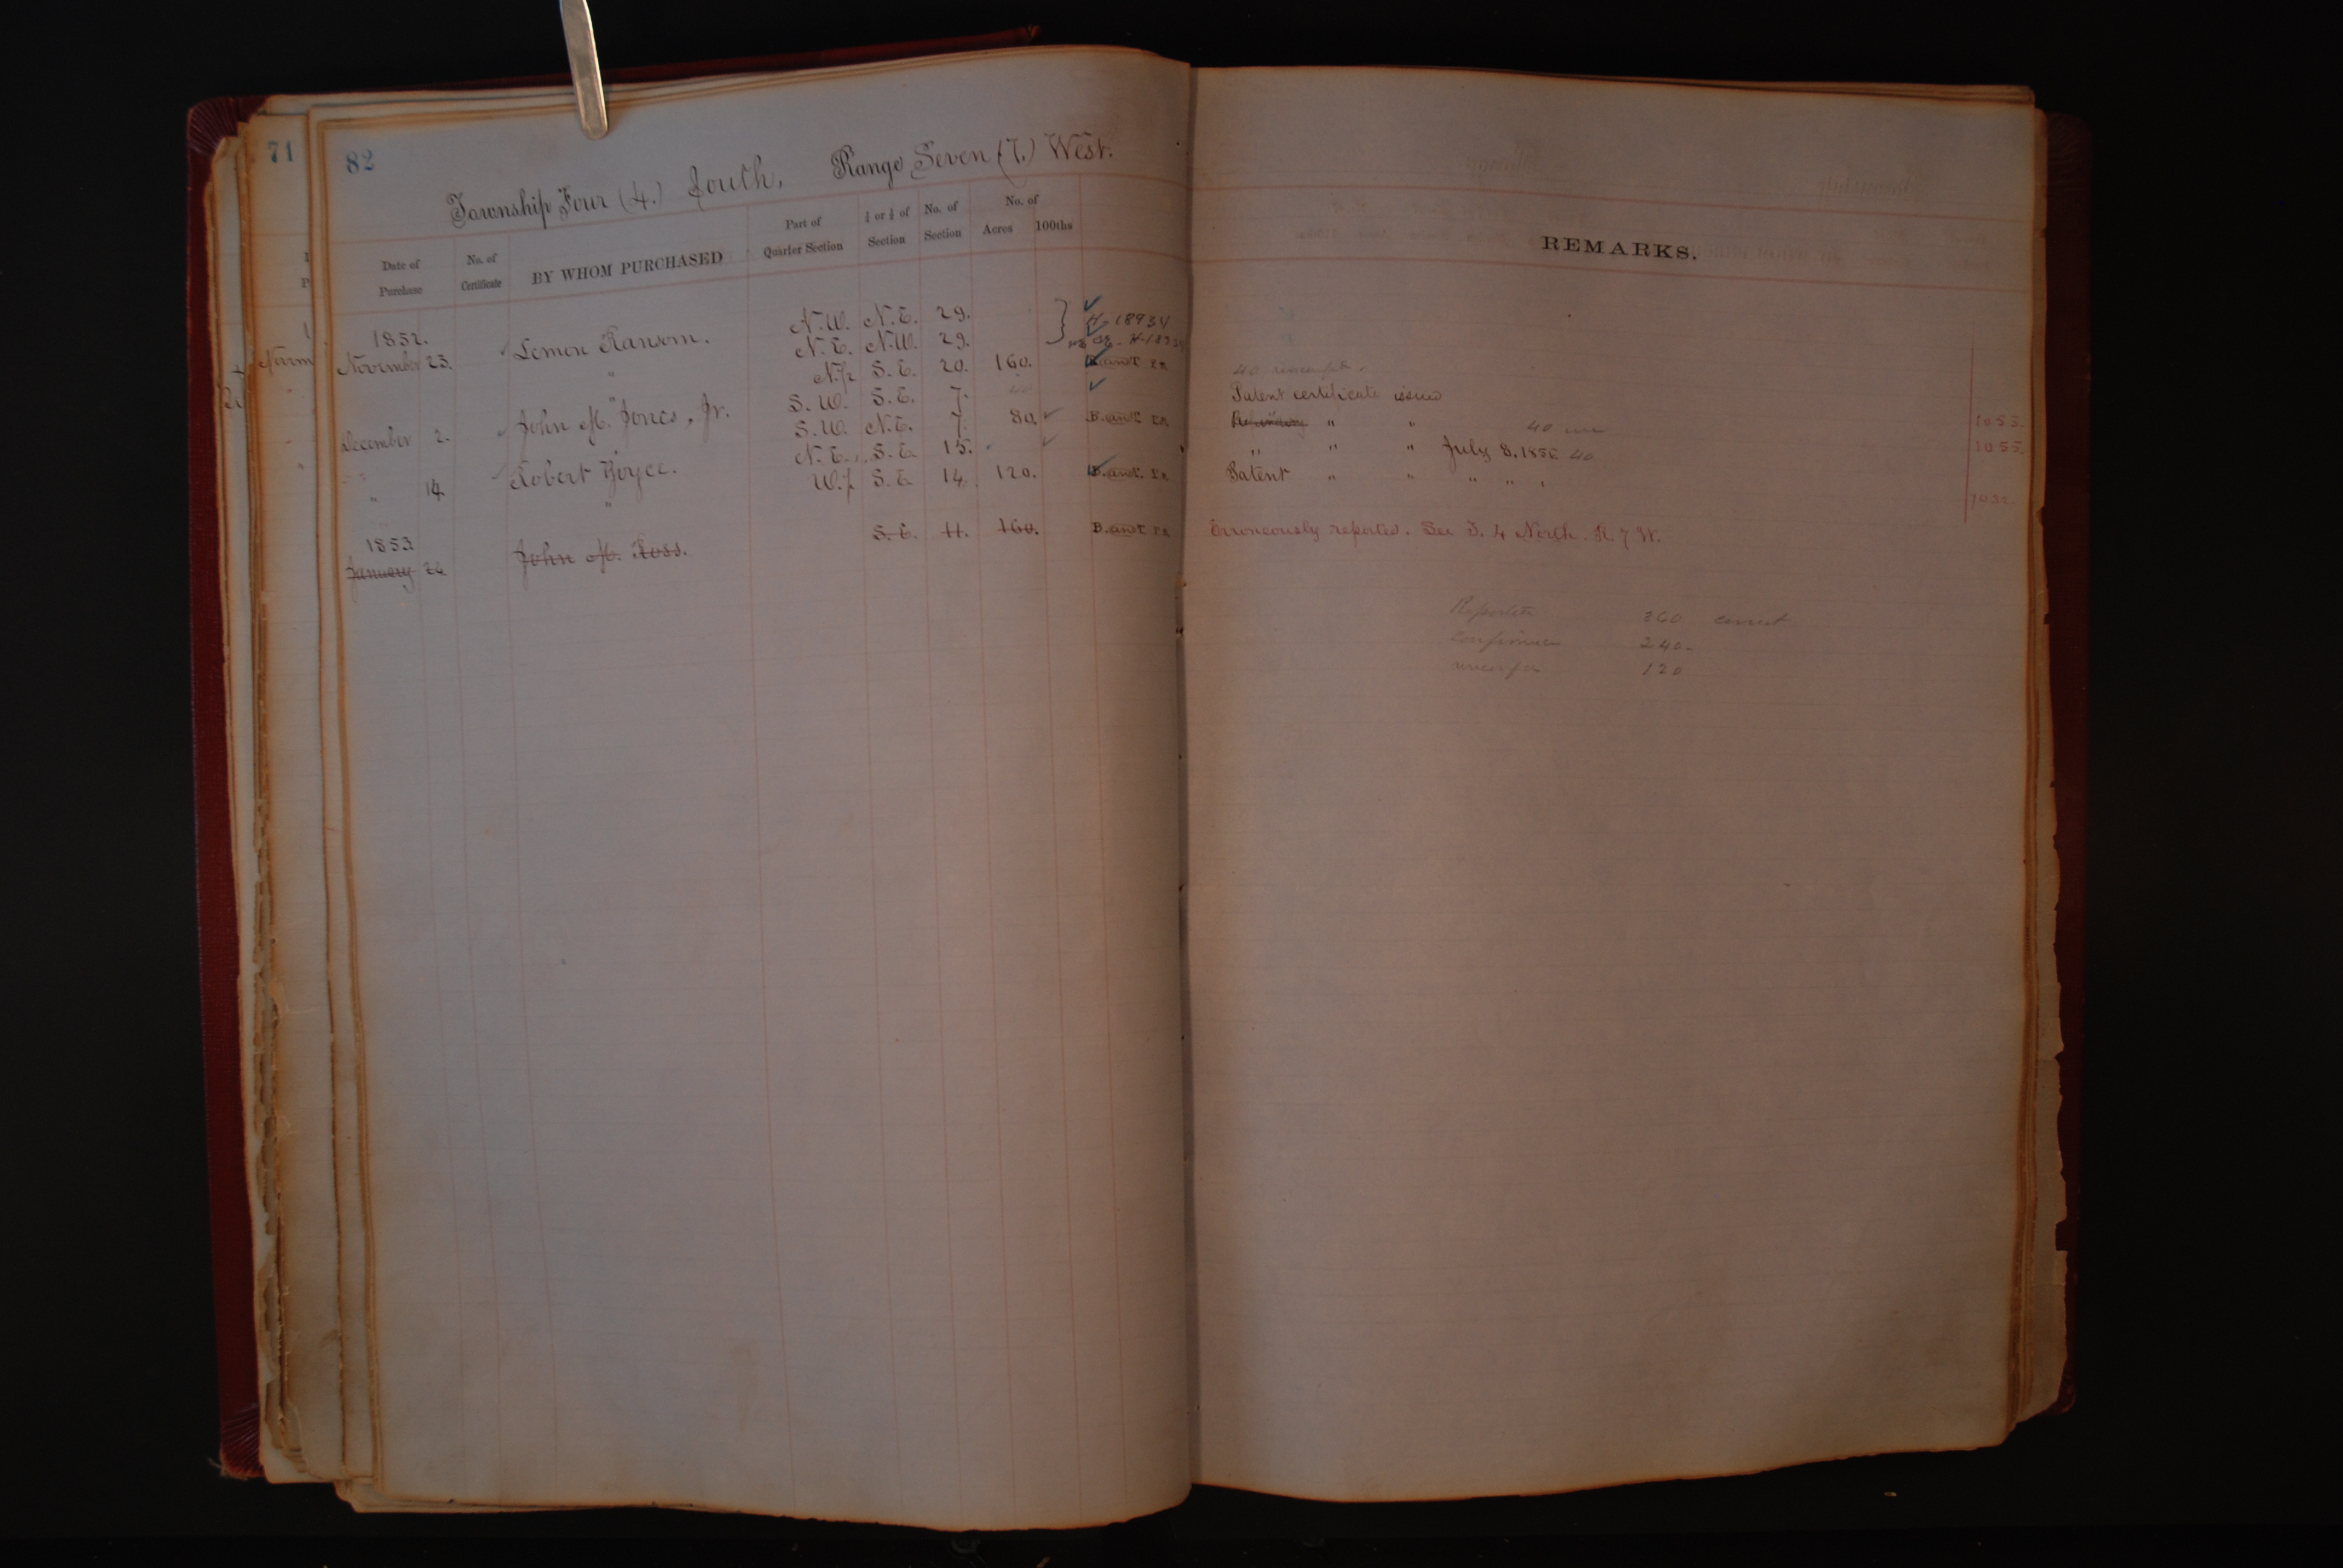 71
82
Township Four (4.) South, Range Seven (7.) West.
Date of Purchase No. of Certificate BY WHOM PURCHASED Part of Quarter Section ¼ or ½ of Section No. of Section No. of Acres 100ths
REMARKS.
1852.
November 23. Lemon Ransom. N.W. N.E. 29. H-18934
" N.E. N.W. 29.
" N.½ S.E. 20. 160. B. and T. R.R.
40
December 2. John M. Jones, Jr. S.W. S.E. 7. 40 Patent certificate issued
S.W. N.E. 7. 80. B. and T. R.R. " " 40 1055.
" 14. Robert Boyce. N.E. S.E. 15. " " " July 8. 1856 40 1055.
" W.½ S.E. 14. 120. B. and T. R.R. Patent " " " " "
1853
January 24. John M. Ross. S.E. 11. 160. B. and T. R.R. Erroneously reported. See T. 4 North. R. 7 W.
Reported 360 correct
Confirmed 240-
120